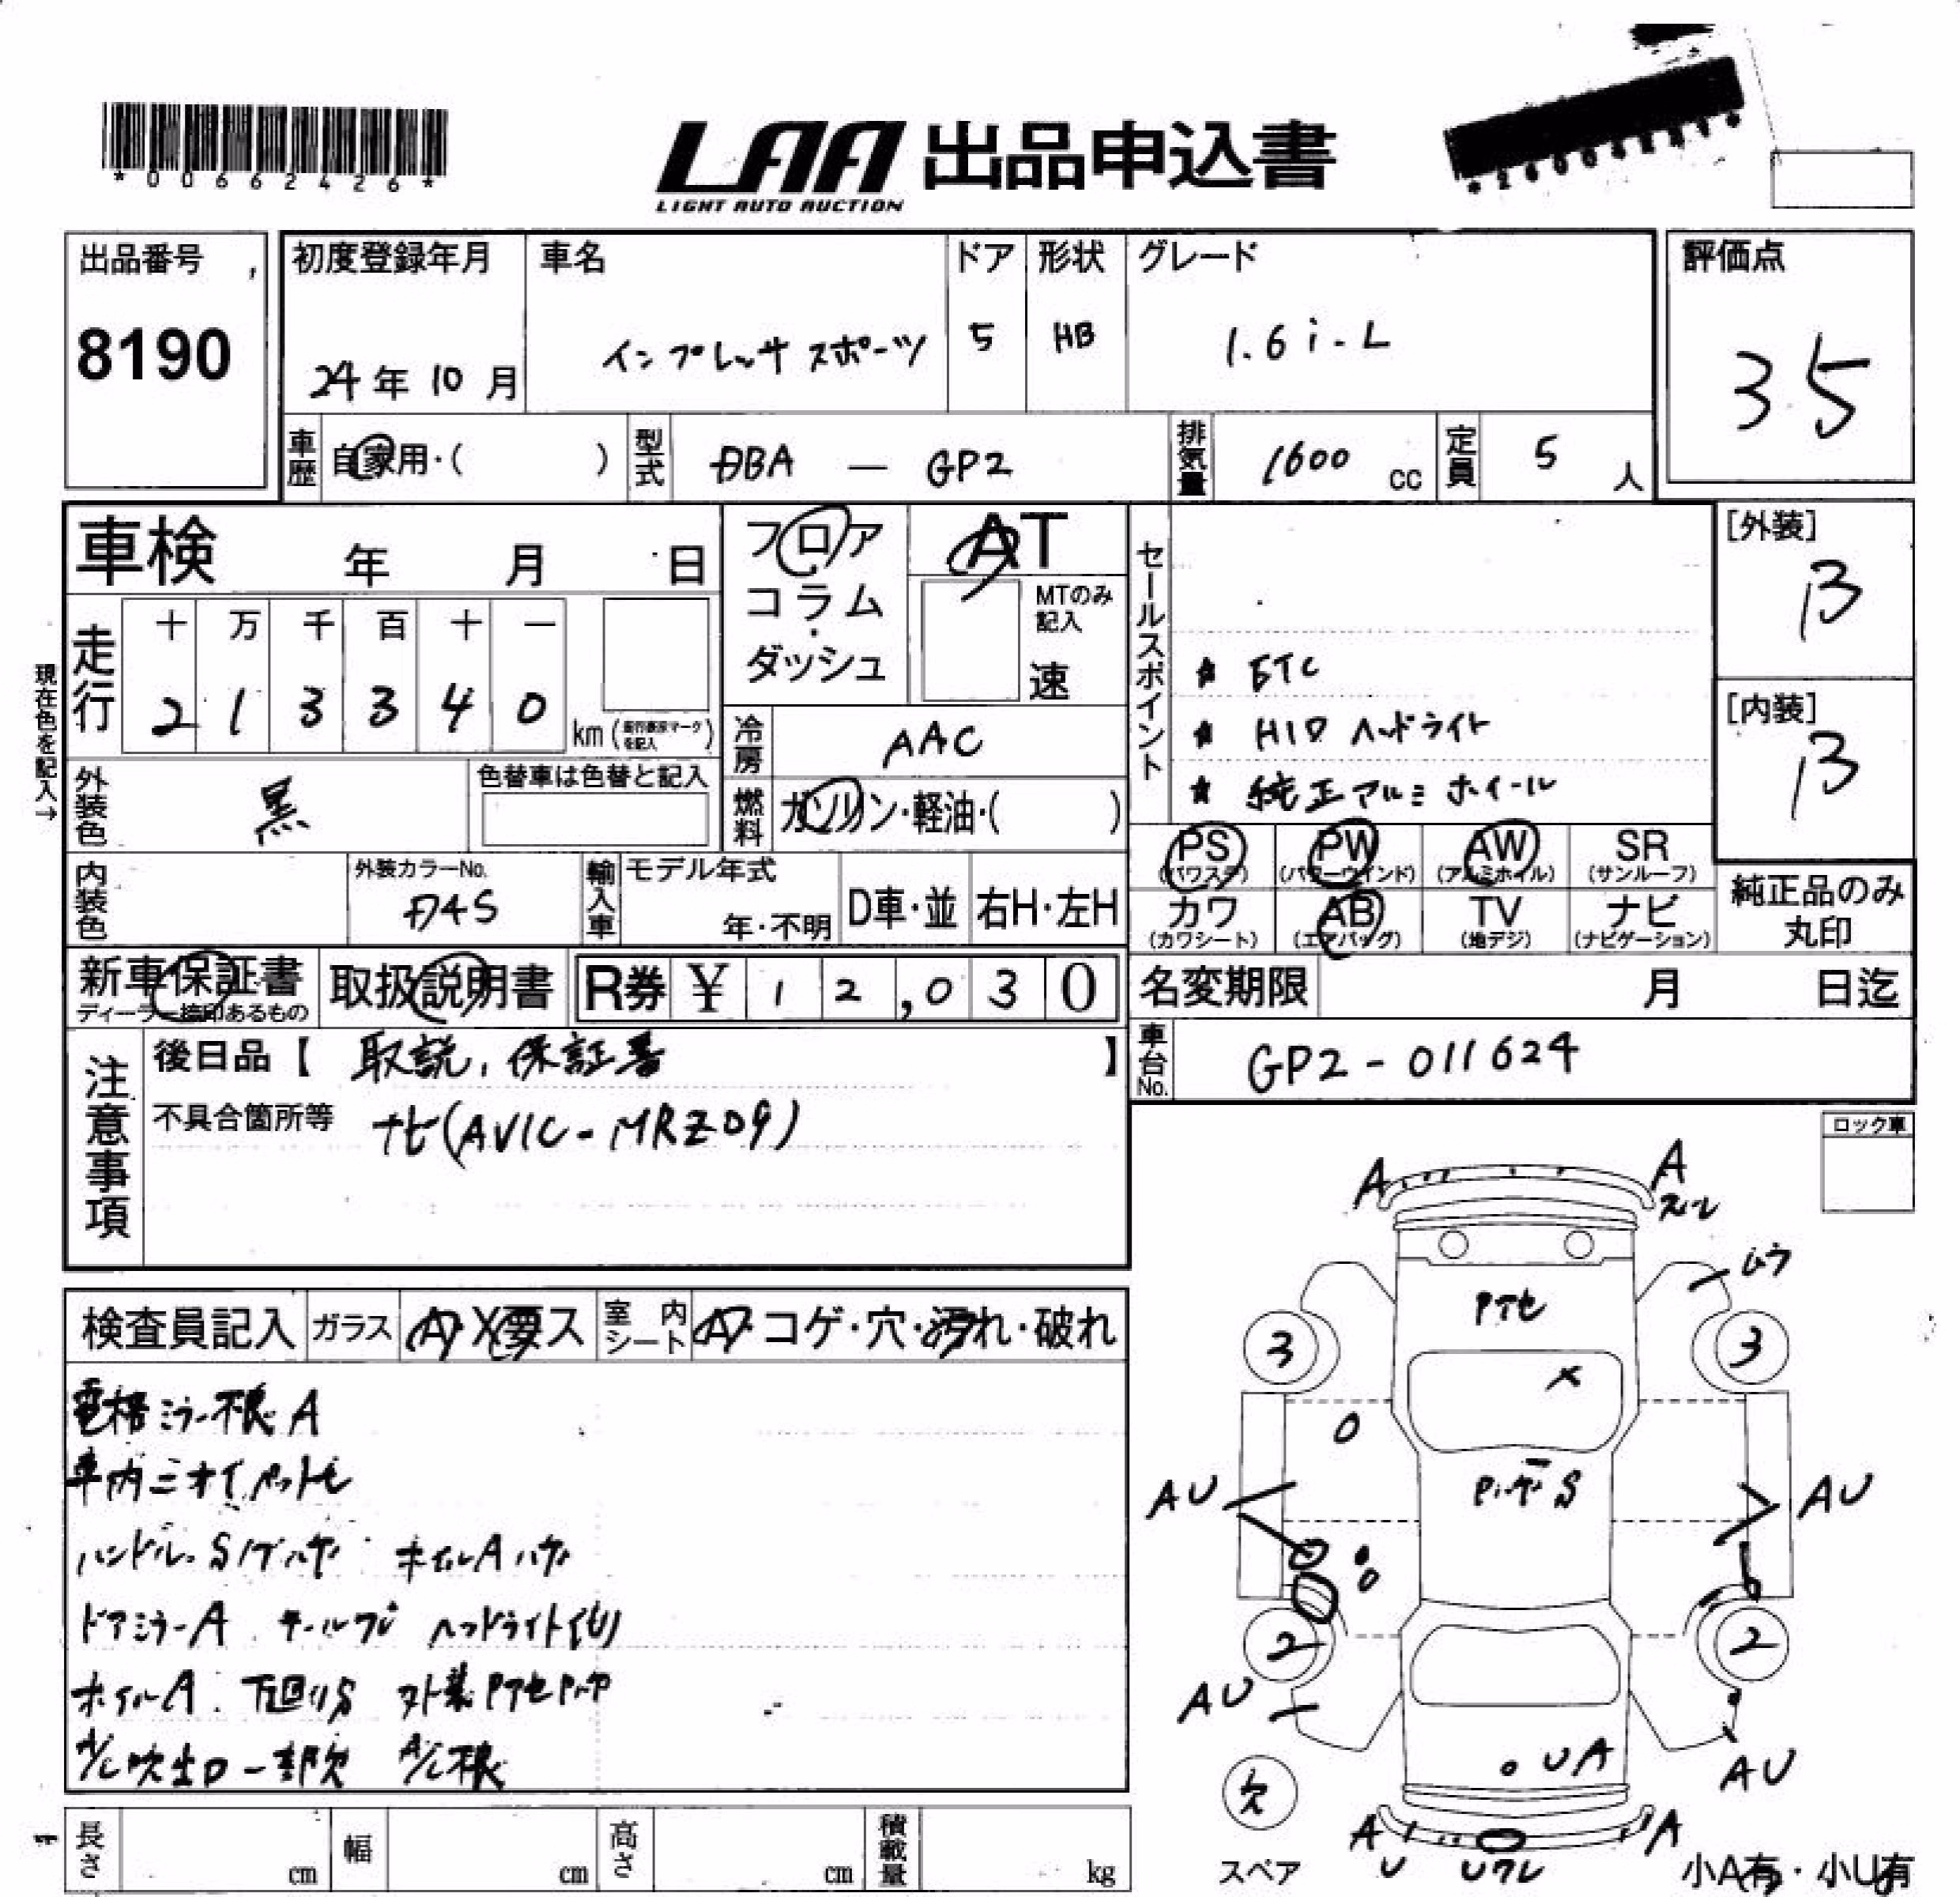 *00662426*
LAA 出品申込書
LIGHT AUTO AUCTION
出品番号
8190
初度登録年月
24年 10月
車名
インプレッサ スポーツ
ドア
5
形状
HB
グレード
1.6 i-L
評価点
35
車歴
自家用・( )
型式
DBA — GP2
排気量
1600 cc
定員
5 人
車検 年 月 日
フロア
コラム
ダッシュ
AT
MTのみ
記入
速
現在色を記入→
走行
十 万 千 百 十 一
2 1 3 3 4 0
km
冷房
AAC
外装色
黒
色替車は色替と記入
燃料
ガソリン・軽油・( )
セールスポイント
★ ETC
★ HID ヘッドライト
★ 純正アルミホイール
[外装]
B
[内装]
B
PS PW AW SR
(パワステ) (パワーウインド) (アルミホイル) (サンルーフ)
カワ AB TV ナビ
(カワシート) (エアバッグ) (地デジ) (ナビゲーション)
純正品のみ
丸印
内装色
外装カラーNo.
D4S
輸入車
モデル年式
年・不明
D車・並
右H・左H
新車保証書
ディーラー捺印あるもの
取扱説明書
R券 ¥ 1 2,0 3 0
名変期限 月 日迄
注意事項
後日品【 取説、保証書 】
不具合箇所等 ナビ(AVIC-MRZ09)
車台No.
GP2-011624
ロック車
検査員記入
ガラス
A・X要ス
室内シート
A・コゲ・穴・汚れ・破れ
電格ミラー不良 A
車内ニオイ ペット毛
ハンドルS ホイルAハゲ
ドアミラーA ヘッドライト
ホイルA 下回りS 外装
A/C吹出口一部欠 A/C不良
A A
3 3
X
AU AU
2 2
AU AU
UA
欠
スペア
A A
U
小A有・小U有
長さ cm
幅 cm
高さ cm
積載量 kg